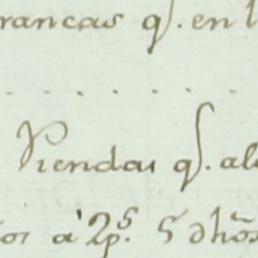 rancas q.̃ en l
Riendas q.̃ al
os à 2p.s 5 dhõs